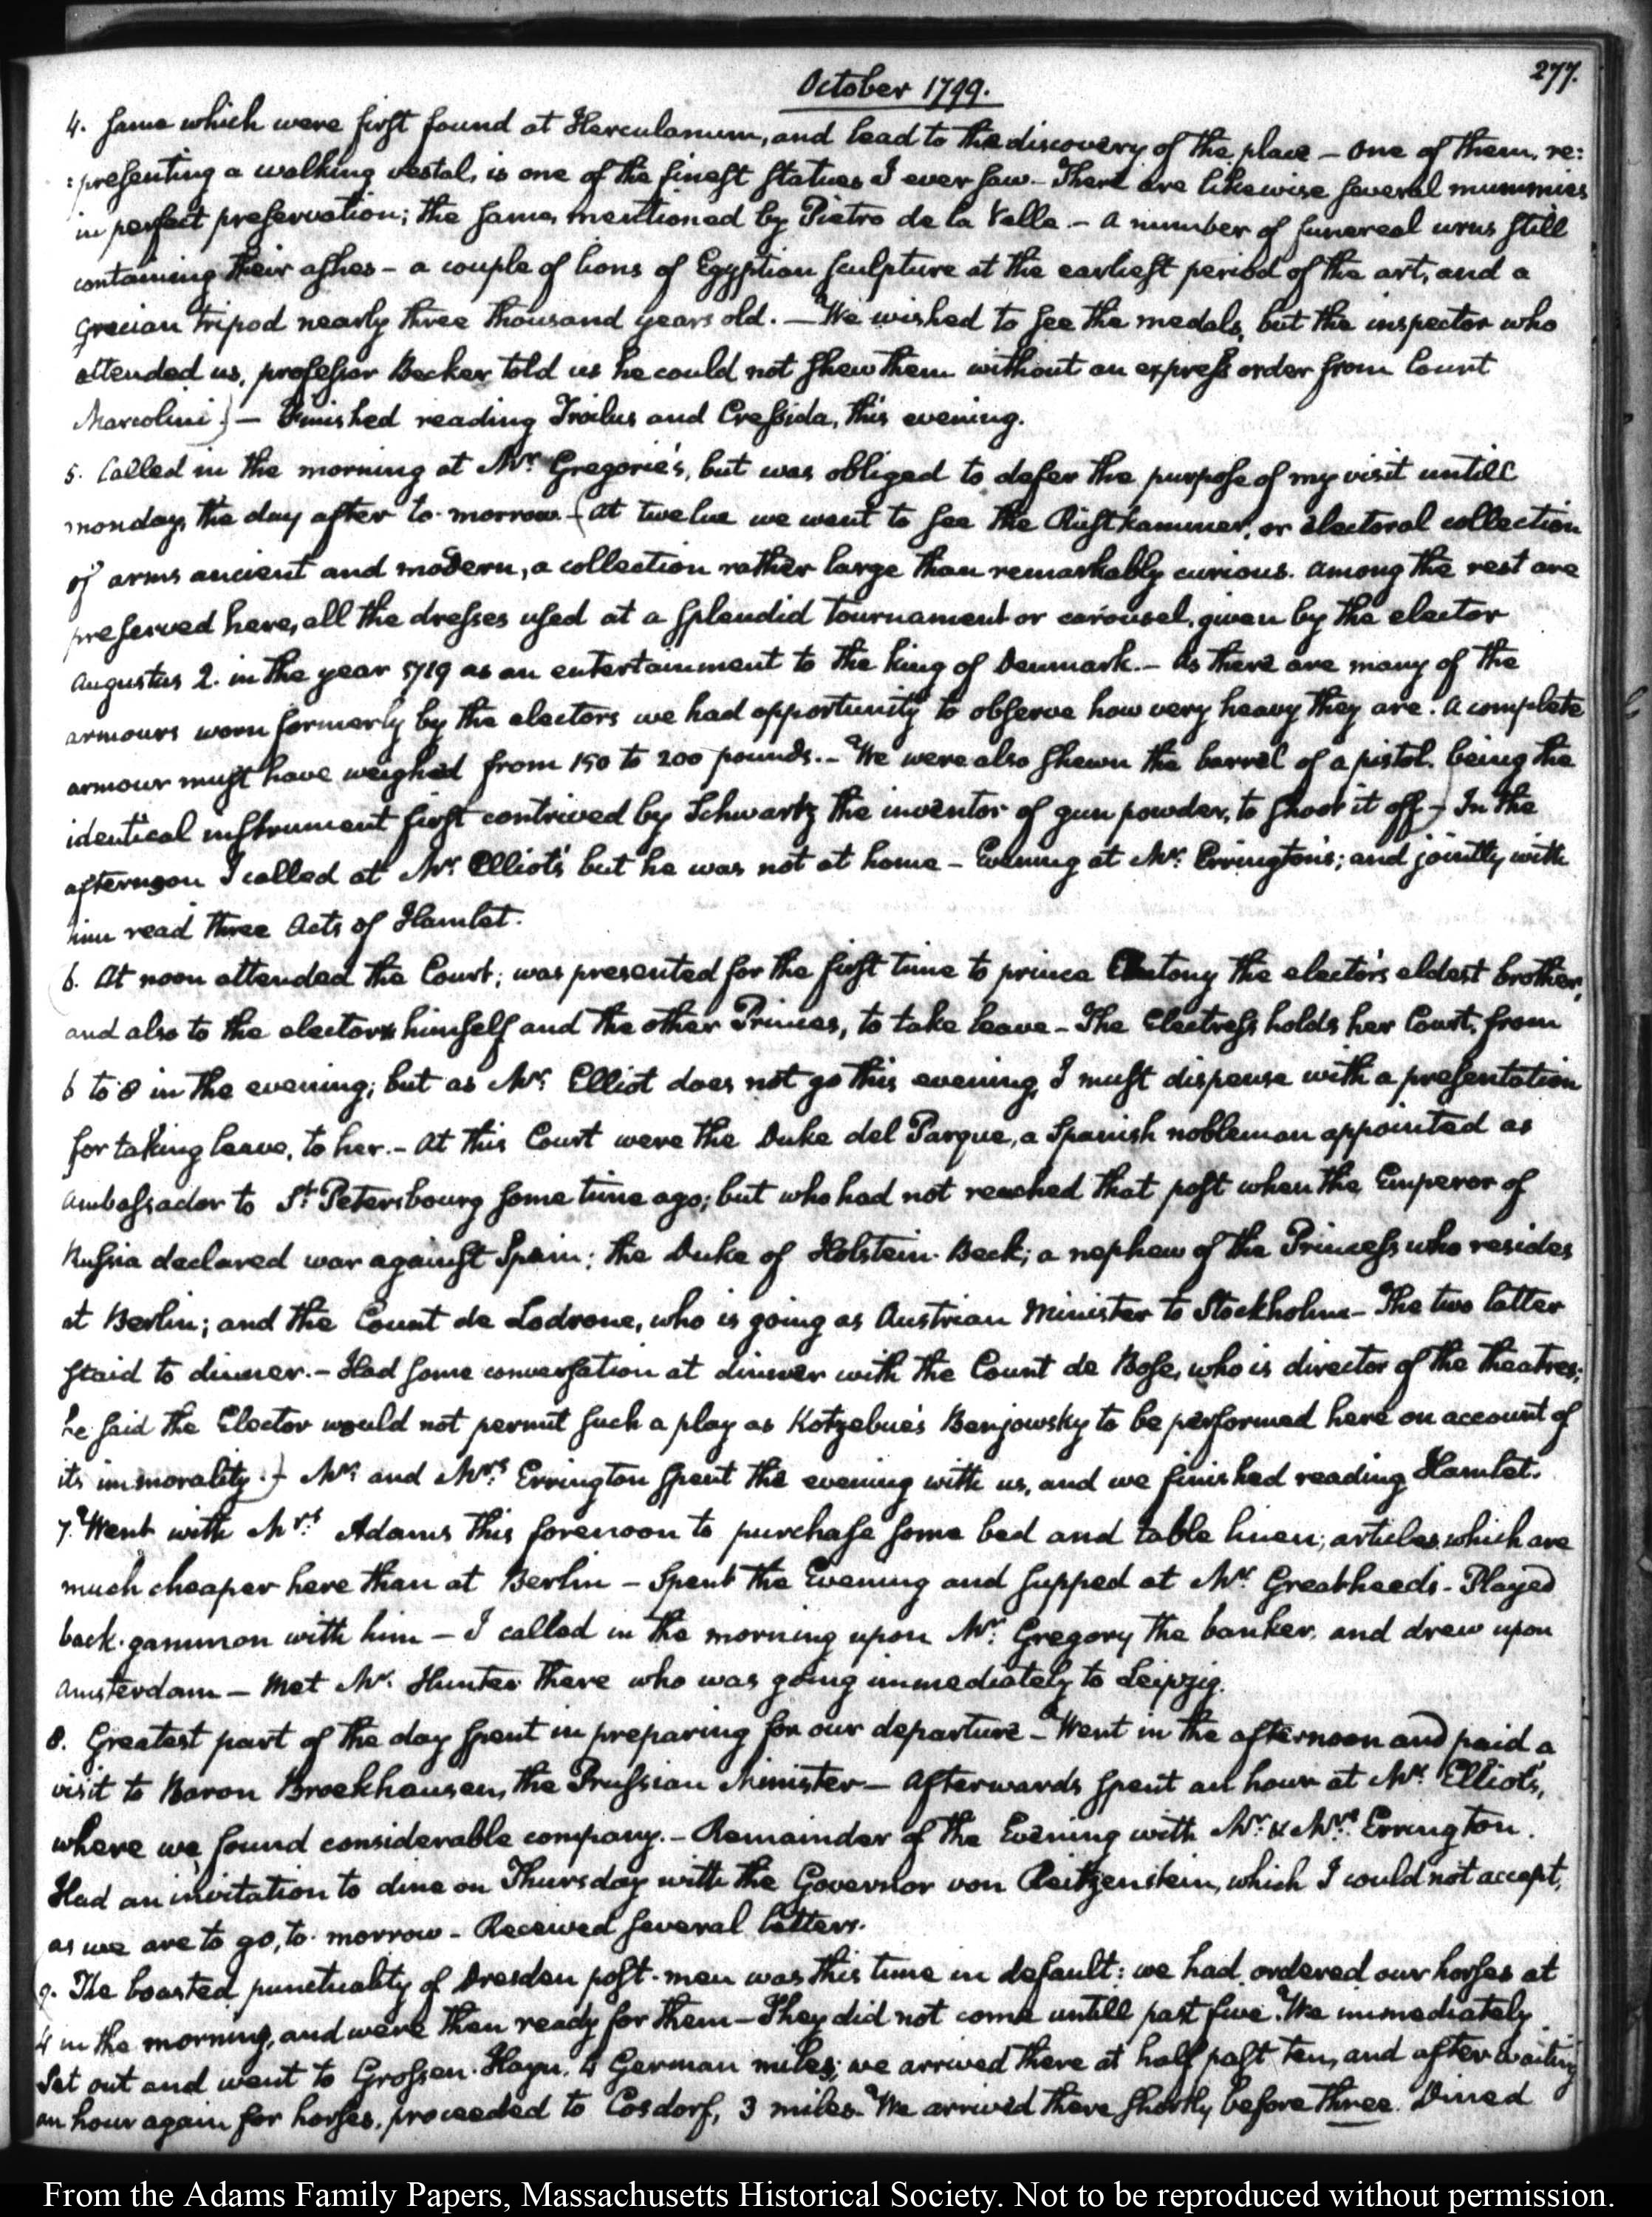 277.
October 1799.
4. same which were first found at Herculanum, and lead to the discovery of the place — One of them, re:
:presenting a walking vestal, is one of the finest statues I ever saw — There are likewise several mummies
in perfect preservation; the same, mentioned by Pietro de la Valle. — A number of funereal urns still
containing their ashes — a couple of lions of Egyptian sculpture at the earliest period of the art, and a
Grecian tripod nearly three thousand years old. — We wished to see the medals, but the inspector who
attended us, professor Becker told us he could not shew them without an express order from Count
Marcolini) — Finished reading Troilus and Cressida, this evening.
5. Called in the morning at Mr. Gregorie's, but was obliged to defer the purpose of my visit untill
monday, the day after to-morrow — (At twelve we went to see the Rüstkammer, or Electoral collection
of arms ancient and modern, a collection rather large than remarkably curious. Among the rest are
preserved here, all the dresses used at a splendid tournament or carousel, given by the elector
Augustus 2. in the year 1719 as an entertainment to the king of Denmark. — As there are many of the
armours worn formerly by the electors we had opportunity to observe how very heavy they are. A complete
armour must have weighed from 150 to 200 pounds. — We were also shewn the barrel of a pistol, being the
identical instrument first contrived by Schwartz the inventor of gun powder, to shoot it off) — In the
afternoon I called at Mr. Elliot's but he was not at home — Evening at Mr. Errington's; and jointly with
him read three Acts of Hamlet.
(6. At noon attended the Court; was presented for the first time to prince Antony the elector's eldest brother,
and also to the elector himself and the other Princes, to take leave — The Electress holds her Court, from
6 to 8 in the evening; but as Mr. Elliot does not go this evening, I must dispense with a presentation
for taking leave, to her. — At this Court were the Duke del Parque, a Spanish nobleman appointed as
ambassador to St. Petersbourg some time ago; but who had not reached that post when the Emperor of
Russia declared war against Spain; the Duke of Holstein-Beck; a nephew of the Princess who resides
at Berlin; and the Count de Lodrone, who is going as Austrian Minister to Stockholm — The two latter
staid to dinner. — Had some conversation at dinner with the Count de Bose, who is director of the theatres;
he said the Elector would not permit such a play as Kotzebue's Benjowsky to be performed here on account of
its immorality.) — Mr. and Mrs. Errington spent the evening with us, and we finished reading Hamlet.
7. Went with Mrs. Adams this forenoon to purchase some bed and table linen; articles which are
much cheaper here than at Berlin — Spent the Evening and supped at Mr. Greatheed's — Played
back-gammon with him — I called in the morning upon Mr. Gregory the banker, and drew upon
Amsterdam — Met Mr. Hunter there who was going immediately to Leipzig.
8. Greatest part of the day spent in preparing for our departure — Went in the afternoon and paid a
visit to Baron Brockhausen, the Prussian Minister — Afterwards spent an hour at Mr. Elliot's,
where we found considerable company. — Remainder of the Evening with Mr. & Mrs. Errington.
Had an invitation to dine on Thursday with the Governor von Reitzenstein, which I could not accept,
as we are to go, to-morrow — Received several letters.
(9. The boasted punctuality of Dresden post-men was this time in default: we had ordered our horses at
4 in the morning, and were then ready for them — They did not come untill past five. We immediately
set out and went to Grossen-Hayn, 4 German miles; we arrived there at half past ten, and after waiting
an hour again for horses, proceeded to Cosdorf, 3 miles. We arrived there shortly before three. Dined
From the Adams Family Papers, Massachusetts Historical Society. Not to be reproduced without permission.